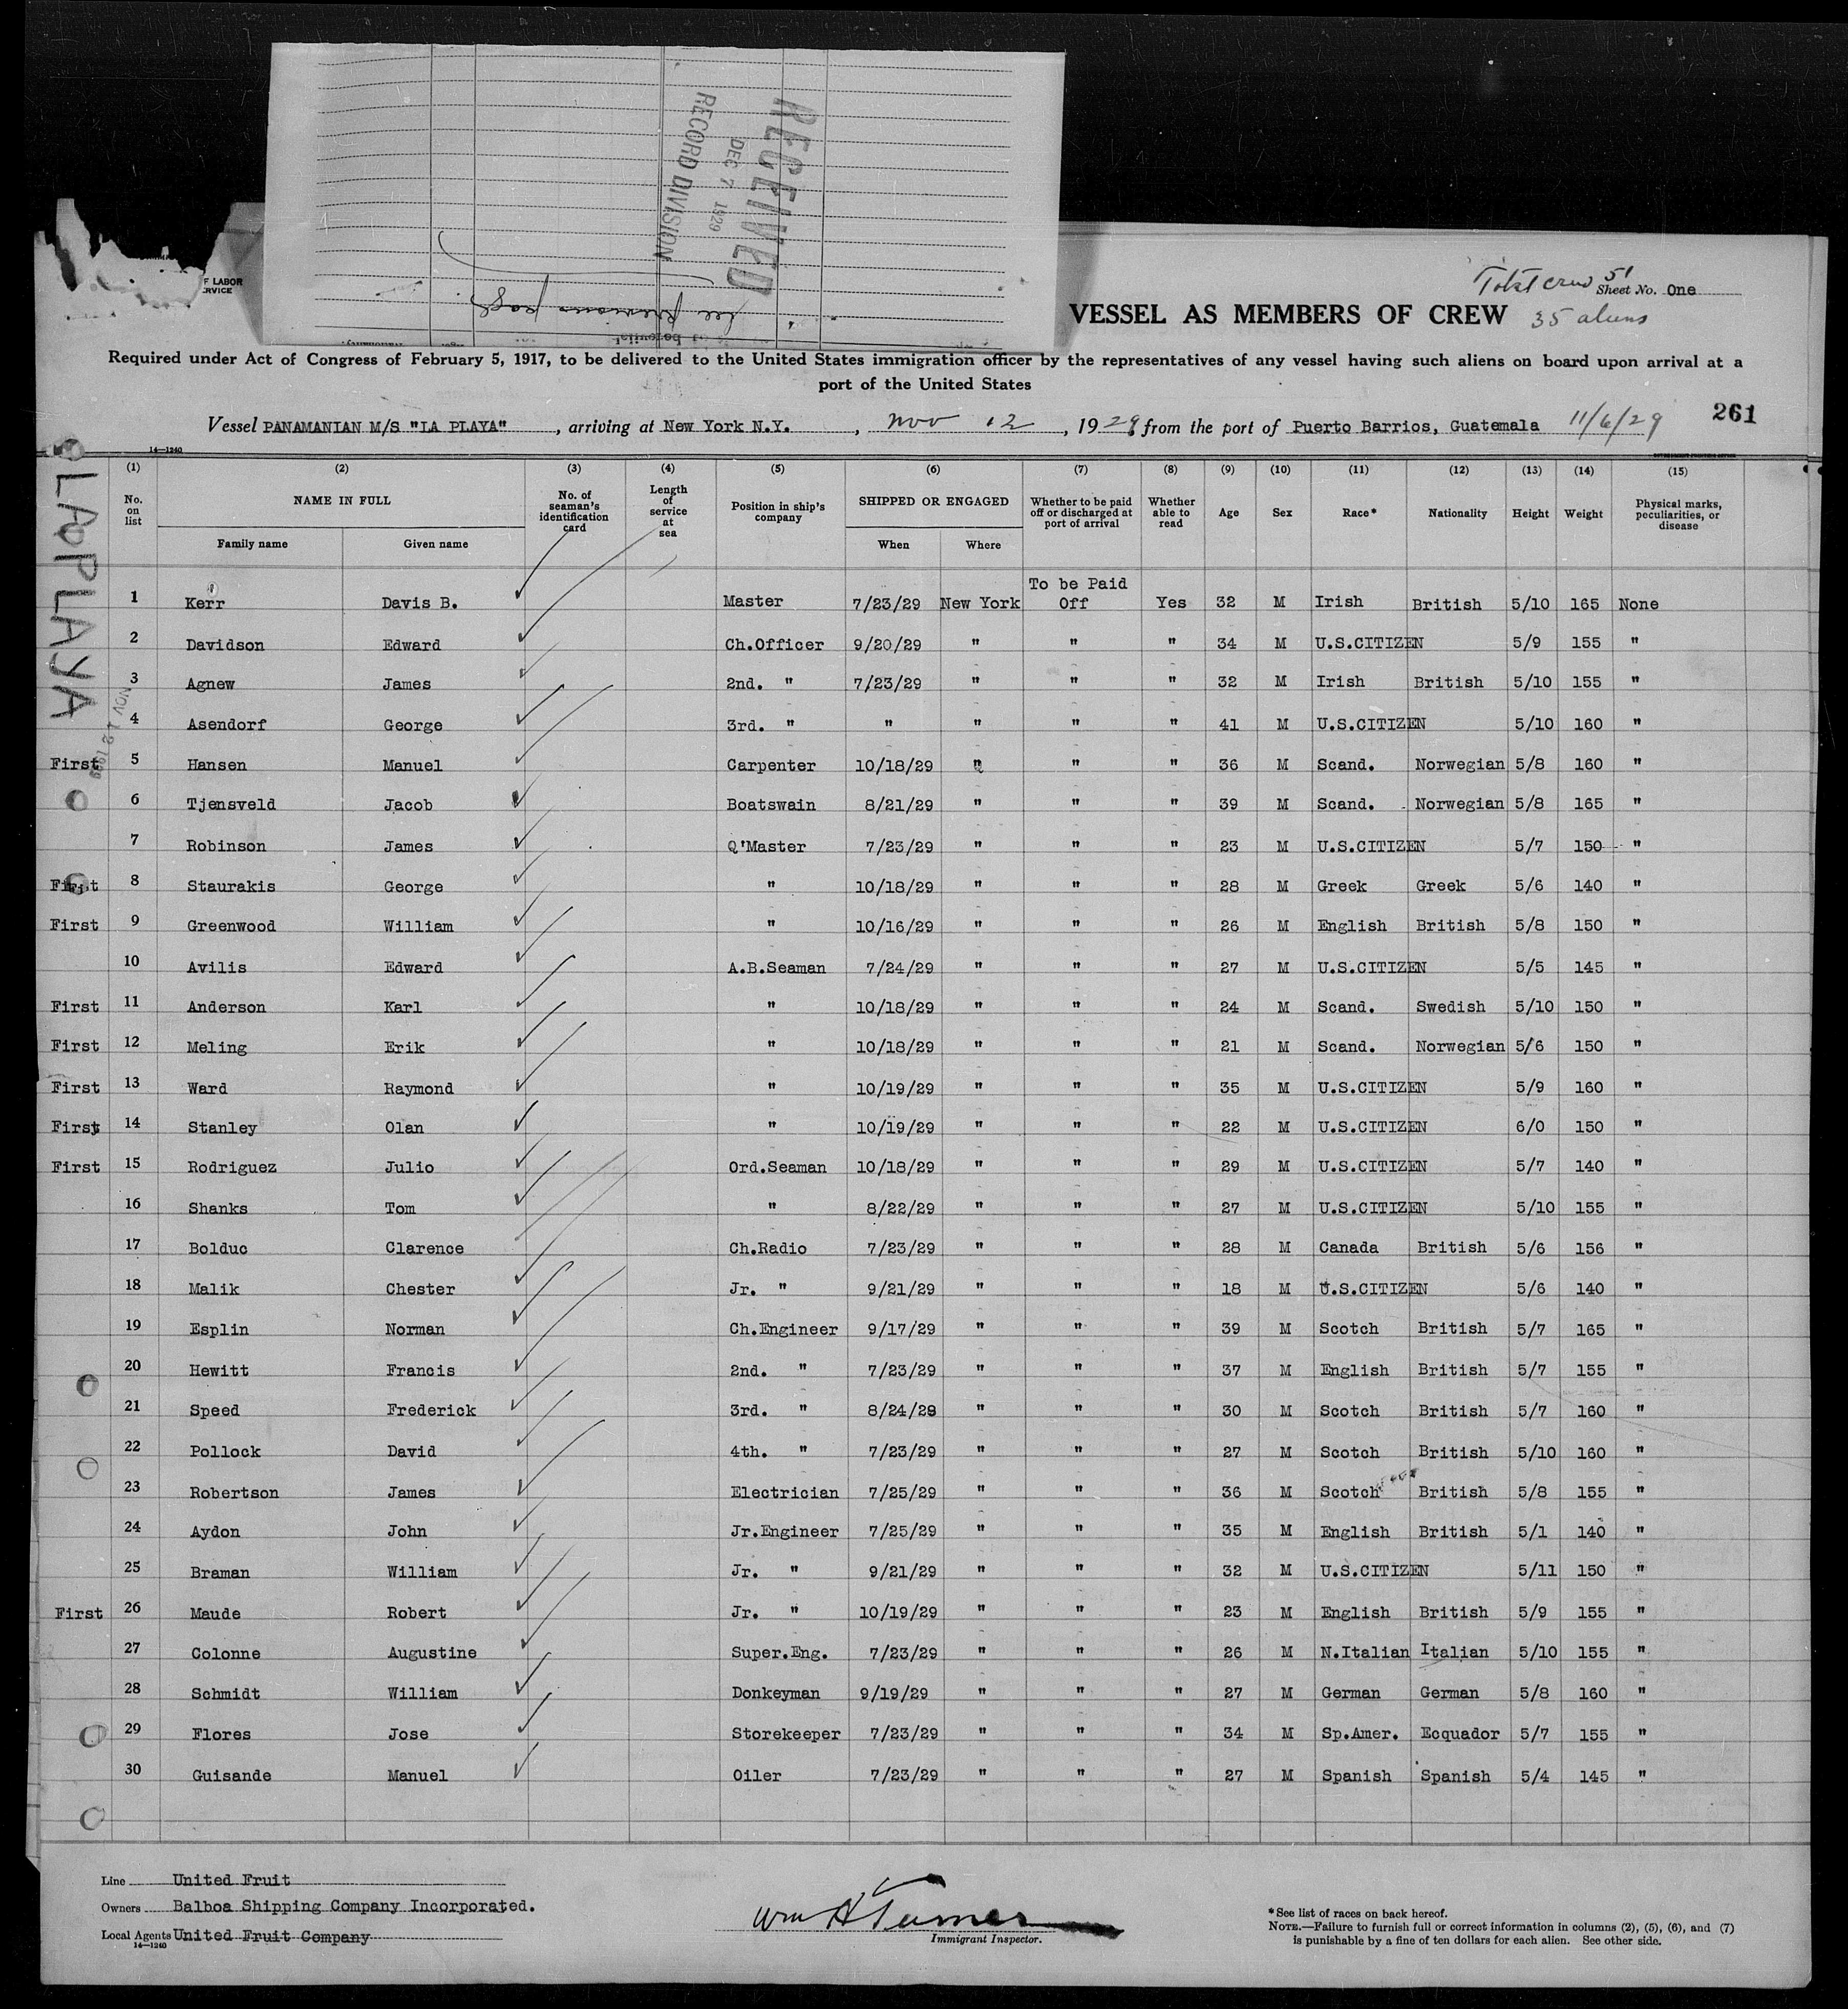 RECEIVED
DEC 7 1929
RECORD DIVISION
see previous page
F LABOR
RVICE
Total crew 51
Sheet No. One
VESSEL AS MEMBERS OF CREW 35 aliens
Required under Act of Congress of February 5, 1917, to be delivered to the United States immigration officer by the representatives of any vessel having such aliens on board upon arrival at a
port of the United States
Vessel PANAMANIAN M/S "LA PLAYA", arriving at New York N.Y., Nov 12, 1929, from the port of Puerto Barrios, Guatemala 11/6/29 261
14—1240
LA PLAYA
NOV 12 1929
(1) (2) (3) (4) (5) (6) (7) (8) (9) (10) (11) (12) (13) (14) (15)
No. on list NAME IN FULL No. of seaman's identification card Length of service at sea Position in ship's company SHIPPED OR ENGAGED Whether to be paid off or discharged at port of arrival Whether able to read Age Sex Race* Nationality Height Weight Physical marks, peculiarities, or disease
Family name Given name When Where
1 Kerr Davis B. Master 7/23/29 New York To be Paid Off Yes 32 M Irish British 5/10 165 None
2 Davidson Edward Ch.Officer 9/20/29 " " " 34 M U.S.CITIZEN 5/9 155 "
3 Agnew James 2nd. " 7/23/29 " " " 32 M Irish British 5/10 155 "
4 Asendorf George 3rd. " " " " " 41 M U.S.CITIZEN 5/10 160 "
First 5 Hansen Manuel Carpenter 10/18/29 " " " 36 M Scand. Norwegian 5/8 160 "
6 Tjensveld Jacob Boatswain 8/21/29 " " " 39 M Scand. Norwegian 5/8 165 "
7 Robinson James Q'Master 7/23/29 " " " 23 M U.S.CITIZEN 5/7 150 "
First 8 Staurakis George " 10/18/29 " " " 28 M Greek Greek 5/6 140 "
First 9 Greenwood William " 10/16/29 " " " 26 M English British 5/8 150 "
10 Avilis Edward A.B.Seaman 7/24/29 " " " 27 M U.S.CITIZEN 5/5 145 "
First 11 Anderson Karl " 10/18/29 " " " 24 M Scand. Swedish 5/10 150 "
First 12 Meling Erik " 10/18/29 " " " 21 M Scand. Norwegian 5/6 150 "
First 13 Ward Raymond " 10/19/29 " " " 35 M U.S.CITIZEN 5/9 160 "
First 14 Stanley Olan " 10/19/29 " " " 22 M U.S.CITIZEN 6/0 150 "
First 15 Rodriguez Julio Ord.Seaman 10/18/29 " " " 29 M U.S.CITIZEN 5/7 140 "
16 Shanks Tom " 8/22/29 " " " 27 M U.S.CITIZEN 5/10 155 "
17 Bolduc Clarence Ch.Radio 7/23/29 " " " 28 M Canada British 5/6 156 "
18 Malik Chester Jr. " 9/21/29 " " " 18 M U.S.CITIZEN 5/6 140 "
19 Esplin Norman Ch.Engineer 9/17/29 " " " 39 M Scotch British 5/7 165 "
20 Hewitt Francis 2nd. " 7/23/29 " " " 37 M English British 5/7 155 "
21 Speed Frederick 3rd. " 8/24/29 " " " 30 M Scotch British 5/7 160 "
22 Pollock David 4th. " 7/23/29 " " " 27 M Scotch British 5/10 160 "
23 Robertson James Electrician 7/25/29 " " " 36 M Scotch British 5/8 155 "
24 Aydon John Jr.Engineer 7/25/29 " " " 35 M English British 5/1 140 "
25 Braman William Jr. " 9/21/29 " " " 32 M U.S.CITIZEN 5/11 150 "
First 26 Maude Robert Jr. " 10/19/29 " " " 23 M English British 5/9 155 "
27 Colonne Augustine Super.Eng. 7/23/29 " " " 26 M N.Italian Italian 5/10 155 "
28 Schmidt William Donkeyman 9/19/29 " " " 27 M German German 5/8 160 "
29 Flores Jose Storekeeper 7/23/29 " " " 34 M Sp.Amer. Ecquador 5/7 155 "
30 Guisande Manuel Oiler 7/23/29 " " " 27 M Spanish Spanish 5/4 145 "
Line United Fruit
Owners Balboa Shipping Company Incorporated.
Local Agents United Fruit Company
14—1240
Wm A Turner
Immigrant Inspector.
*See list of races on back hereof.
NOTE.—Failure to furnish full or correct information in columns (2), (5), (6), and (7)
is punishable by a fine of ten dollars for each alien. See other side.